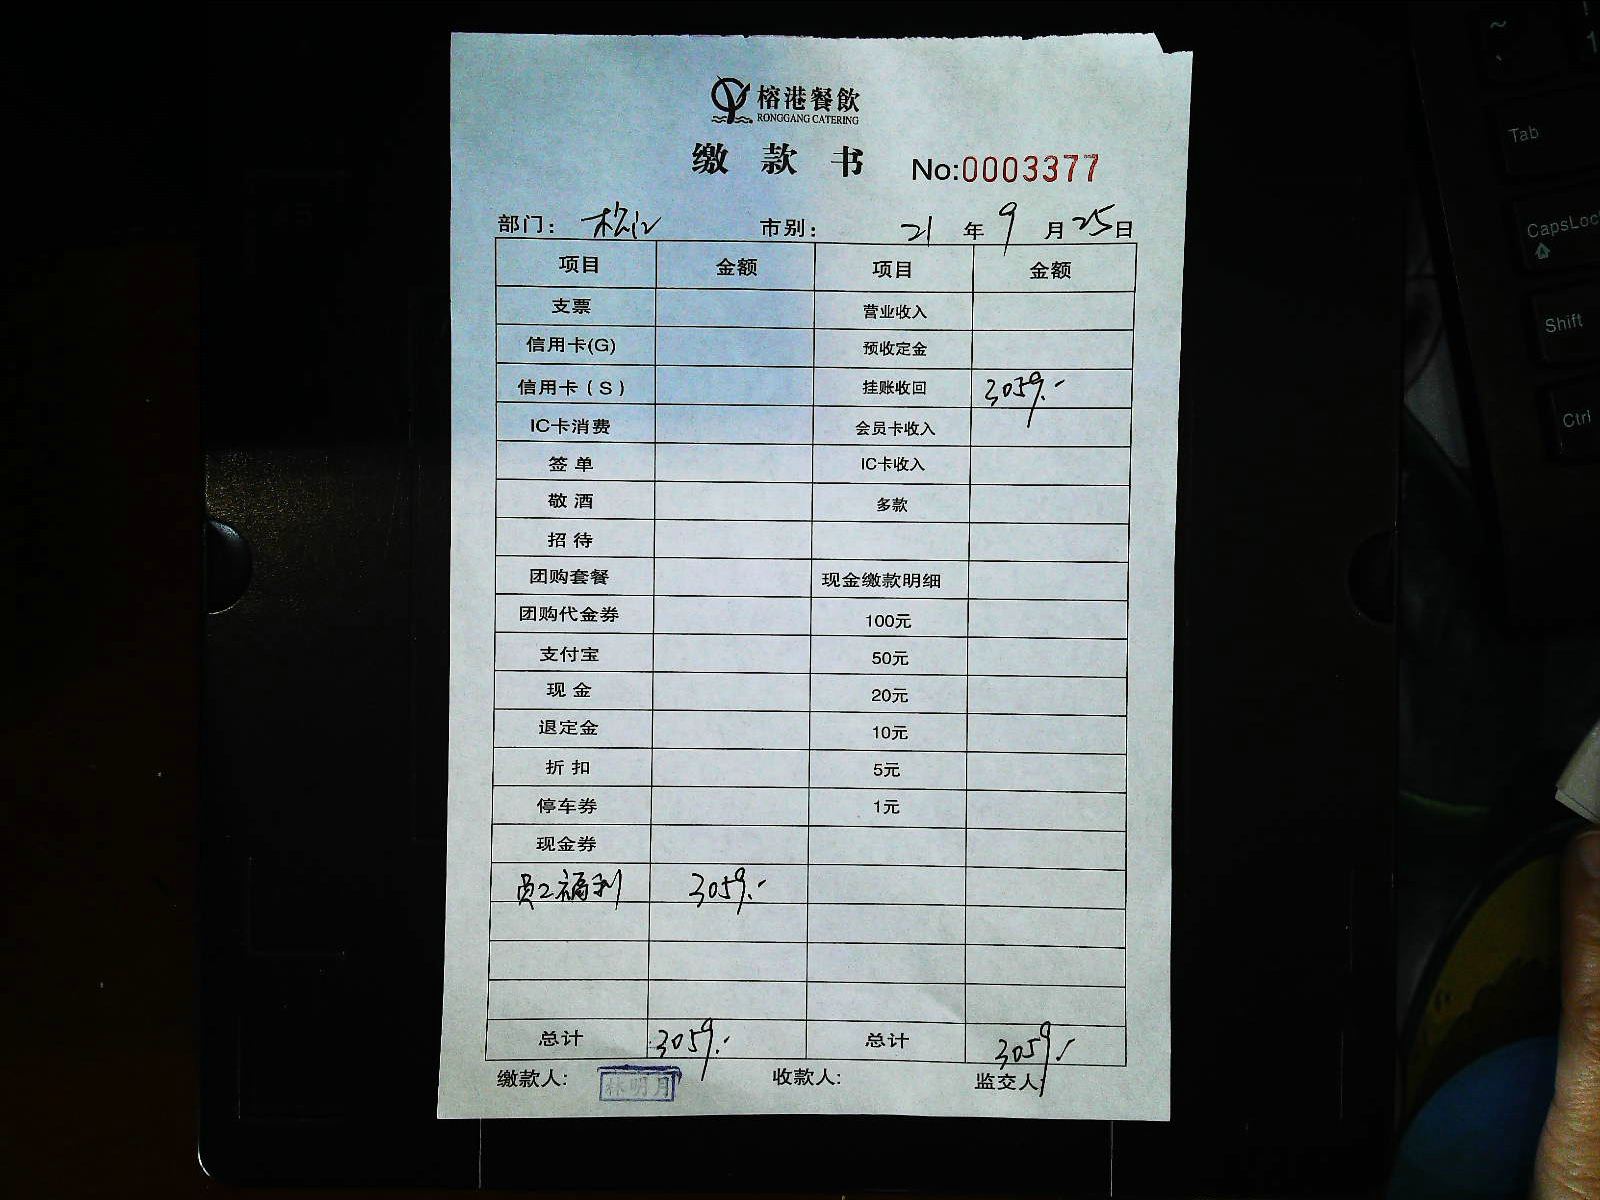 榕港餐飲
RONGGANG CATERING
缴 款 书 No:0003377
部门: 松江 市别: 21 年 9 月 25 日
项目 金额 项目 金额
支票 营业收入
信用卡(G) 预收定金
信用卡(S) 挂账收回 3059.-
IC卡消费 会员卡收入
签 单 IC卡收入
敬 酒 多款
招 待
团购套餐 现金缴款明细
团购代金券 100元
支付宝 50元
现 金 20元
退定金 10元
折 扣 5元
停车券 1元
现金券
员工福利 3059.-
总计 3059.- 总计 3059.-
缴款人: 林明月 收款人: 监交人:
~ !
` 1
Tab
CapsLoc
Shift
Ctrl